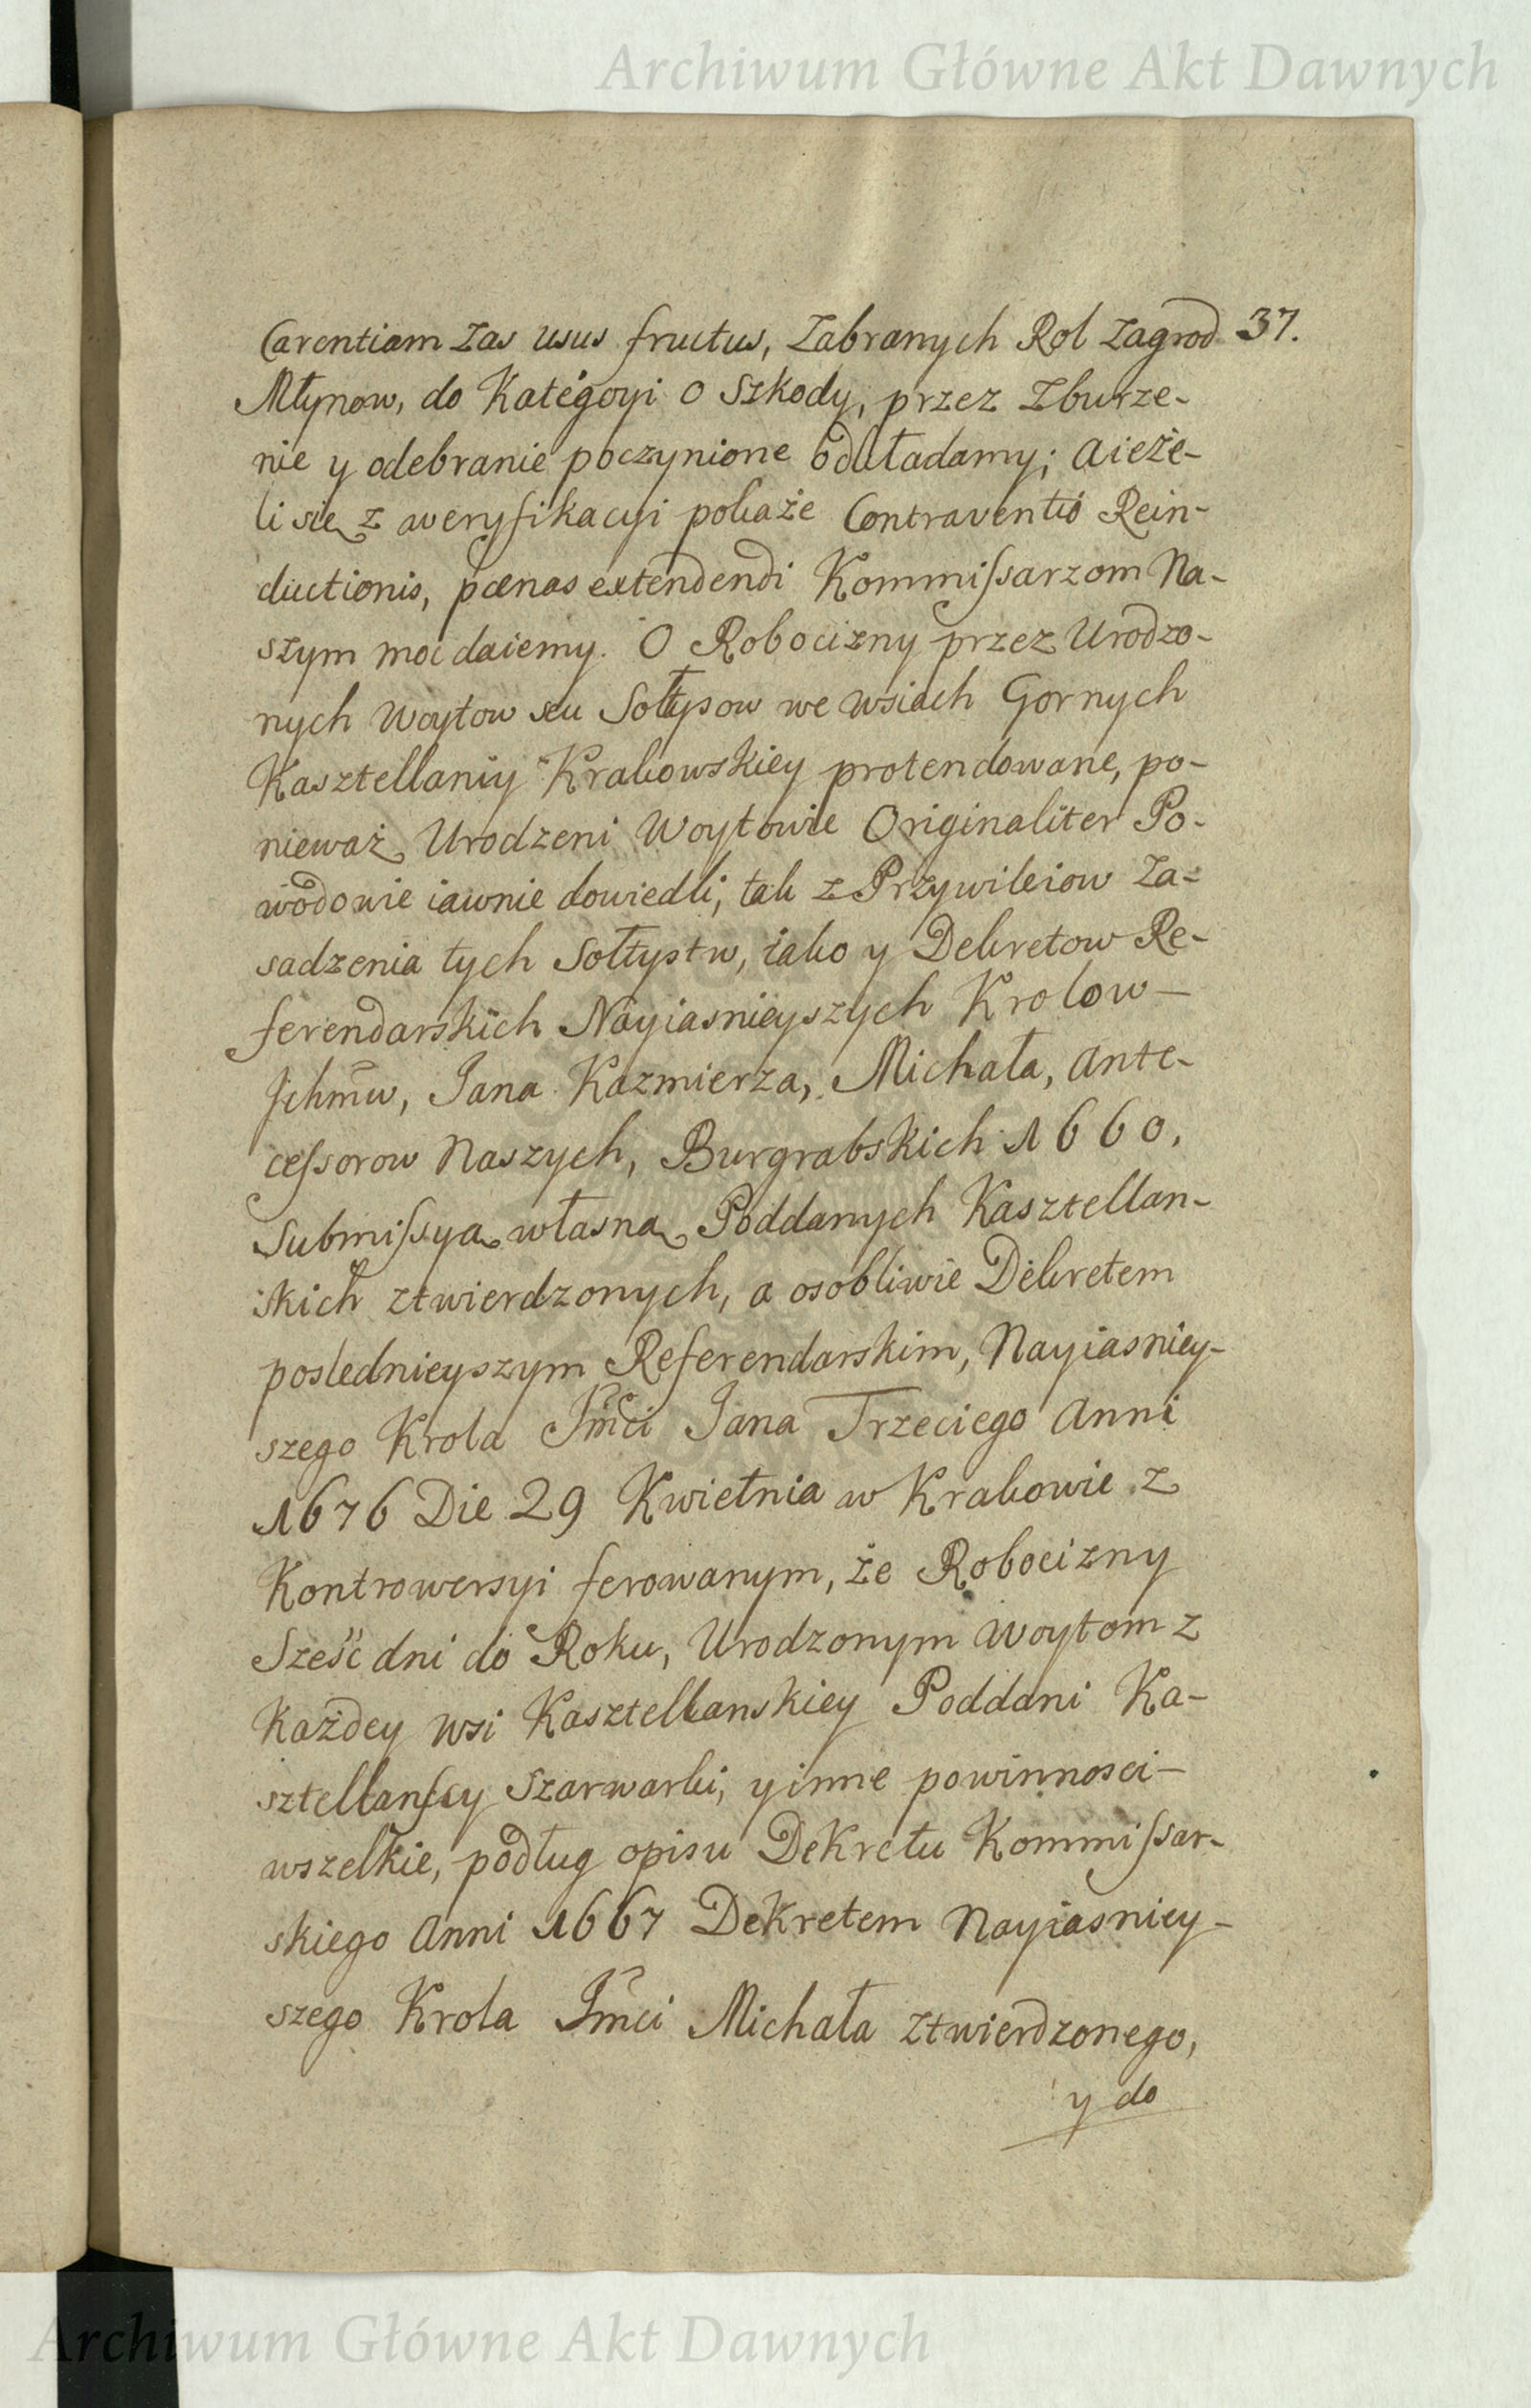 Archiwum Główne Akt Dawnych
Carentiam zas usus fructus, Zabranych Rol Zagrod 37.
Młynow, do Kategoyi o Szkody, przez Zburze-
nie y odebranie poczynione odkładamy; a ieże-
li się z weryfikacyi pokaże Contraventio Rein-
ductionis, pœnas extendendi Kommissarzom Na-
szym moc daiemy. O Robocizny przez Urodzo-
nych Woytow seu Sołtysow we wsiach Gornych
Kasztellaniy Krakowskiey protendowane, po-
nieważ Urodzeni Woytowie Originaliter Po-
wodowie iawnie dowiedli, tak z Przywileiow Za-
sadzenia tych Sołtystw, iako y Dekretow Re-
ferendarskich Nayiasnieyszych Krolow-
Jchmw, Jana Kazmierza, Michała, Ante-
cessorow Naszych, Burgrabskich 1660,
Submissyą własną Poddanych Kasztellan-
skich ztwierdzonych, a osobliwie Dekretem
poslednieyszym Referendarskim, Nayiasniey-
szego Krola Jmci Jana Trzeciego Anni
1676 Die 29 Kwietnia w Krakowie z
Kontrowersyi ferowanym, że Robocizny
Sześć dni do Roku, Urodzonym Woytom z
każdey wsi Kasztellanskiey Poddani Ka-
sztellanscy Szarwarki, y inne powinnosci-
wszelkie, podług opisu Dekretu Kommissar-
skiego Anni 1667 Dekretem Nayiasniey-
szego Krola Jmci Michała ztwierdzonego,
y do
Archiwum Główne Akt Dawnych